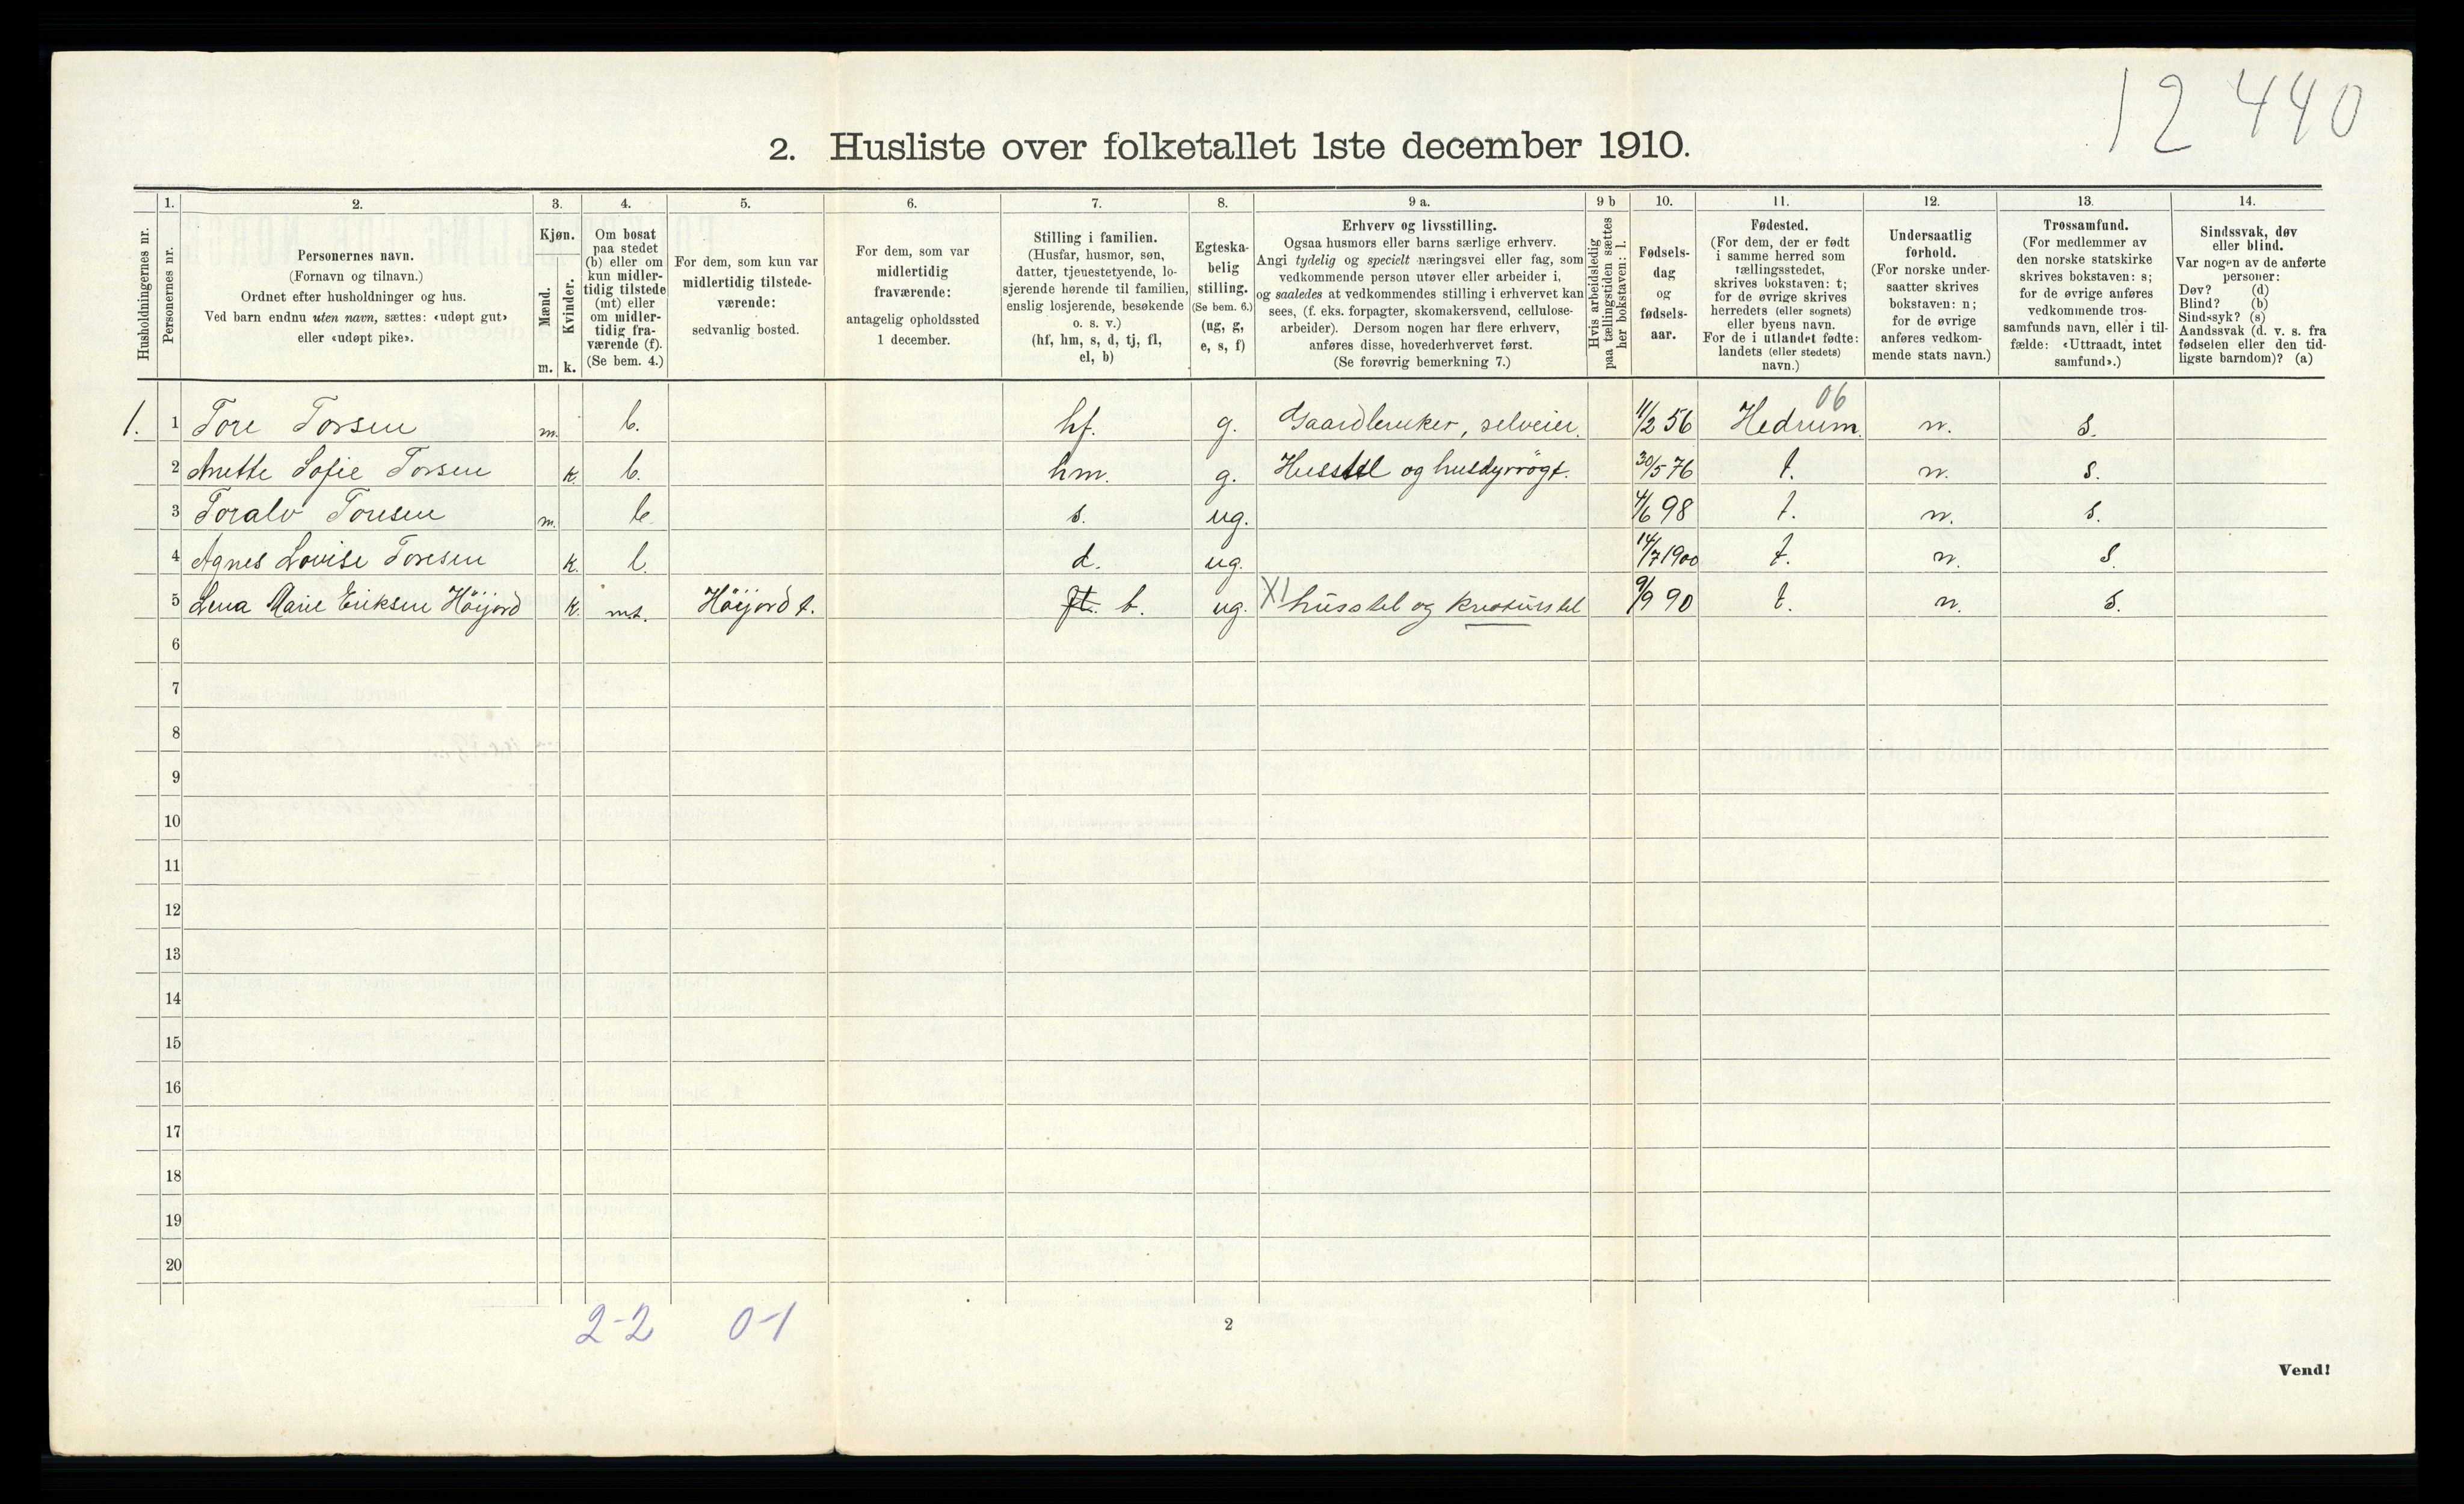 12 440
2. Husliste over folketallet 1ste december 1910.
Husholdningernes nr.
1.
Personernes nr.
2.
Personernes navn.
(Fornavn og tilnavn.)
Ordnet efter husholdninger og hus.
Ved barn endnu uten navn, sættes: «udøpt gut»
eller «udøpt pike».
3.
Kjøn.
Mænd.
Kvinder.
m. k.
4.
Om bosat
paa stedet
(b) eller om
kun midler-
tidig tilstede
(mt) eller
om midler-
tidig fra-
værende (f).
(Se bem. 4.)
5.
For dem, som kun var
midlertidig tilstede-
værende:
sedvanlig bosted.
6.
For dem, som var
midlertidig
fraværende:
antagelig opholdssted
1 december.
7.
Stilling i familien.
(Husfar, husmor, søn,
datter, tjenestetyende, lo-
sjerende hørende til familien,
enslig losjerende, besøkende
o. s. v.)
(hf, hm, s, d, tj, fl,
el, b)
8.
Egteska-
belig
stilling.
(Se bem. 6.)
(ug, g,
e, s, f)
9 a.
Erhverv og livsstilling.
Ogsaa husmors eller barns særlige erhverv.
Angi tydelig og specielt næringsvei eller fag, som
vedkommende person utøver eller arbeider i,
og saaledes at vedkommendes stilling i erhvervet kan
sees, (f. eks. forpagter, skomakersvend, cellulose-
arbeider). Dersom nogen har flere erhverv,
anføres disse, hovederhvervet først.
(Se forøvrig bemerkning 7.)
9 b
Hvis arbeidsledig
paa tællingstiden sættes
her bokstaven: l.
10.
Fødsels-
dag
og
fødsels-
aar.
11.
Fødested.
(For dem, der er født
i samme herred som
tællingsstedet,
skrives bokstaven: t;
for de øvrige skrives
herredets (eller sognets)
eller byens navn.
For de i utlandet fødte:
landets (eller stedets)
navn.)
12.
Undersaatlig
forhold.
(For norske under-
saatter skrives
bokstaven: n;
for de øvrige
anføres vedkom-
mende stats navn.)
13.
Trossamfund.
(For medlemmer av
den norske statskirke
skrives bokstaven: s;
for de øvrige anføres
vedkommende tros-
samfunds navn, eller i til-
fælde: «Uttraadt, intet
samfund».)
14.
Sindssvak, døv
eller blind.
Var nogen av de anførte
personer:
Døv? (d)
Blind? (b)
Sindssyk? (s)
Aandssvak (d. v. s. fra
fødselen eller den tid-
ligste barndom)? (a)
06
1. 1 Tore Torsen m. b. hf. g. Gaardbruker, selveier. 11/2 56 Hedrum. n. s.
2 Anette Sofie Torsen k. b. hm. g. Husstel og husdyrrögt. 30/5 76 t. n. s.
3 Toralv Toresen m. b. s. ug. 4/6 98 t. n. s.
4 Agnes Lovise Toresen k. b. d. ug. 14/7 1900 t. n. s.
5 Lena Marie Eriksen Höijord k. mt. Höijord t. b. ug. XI husstel og kreaturstel 9/9 90 t. n. s.
6
7
8
9
10
11
12
13
14
15
16
17
18
19
20
2-2 0-1
2
Vend!